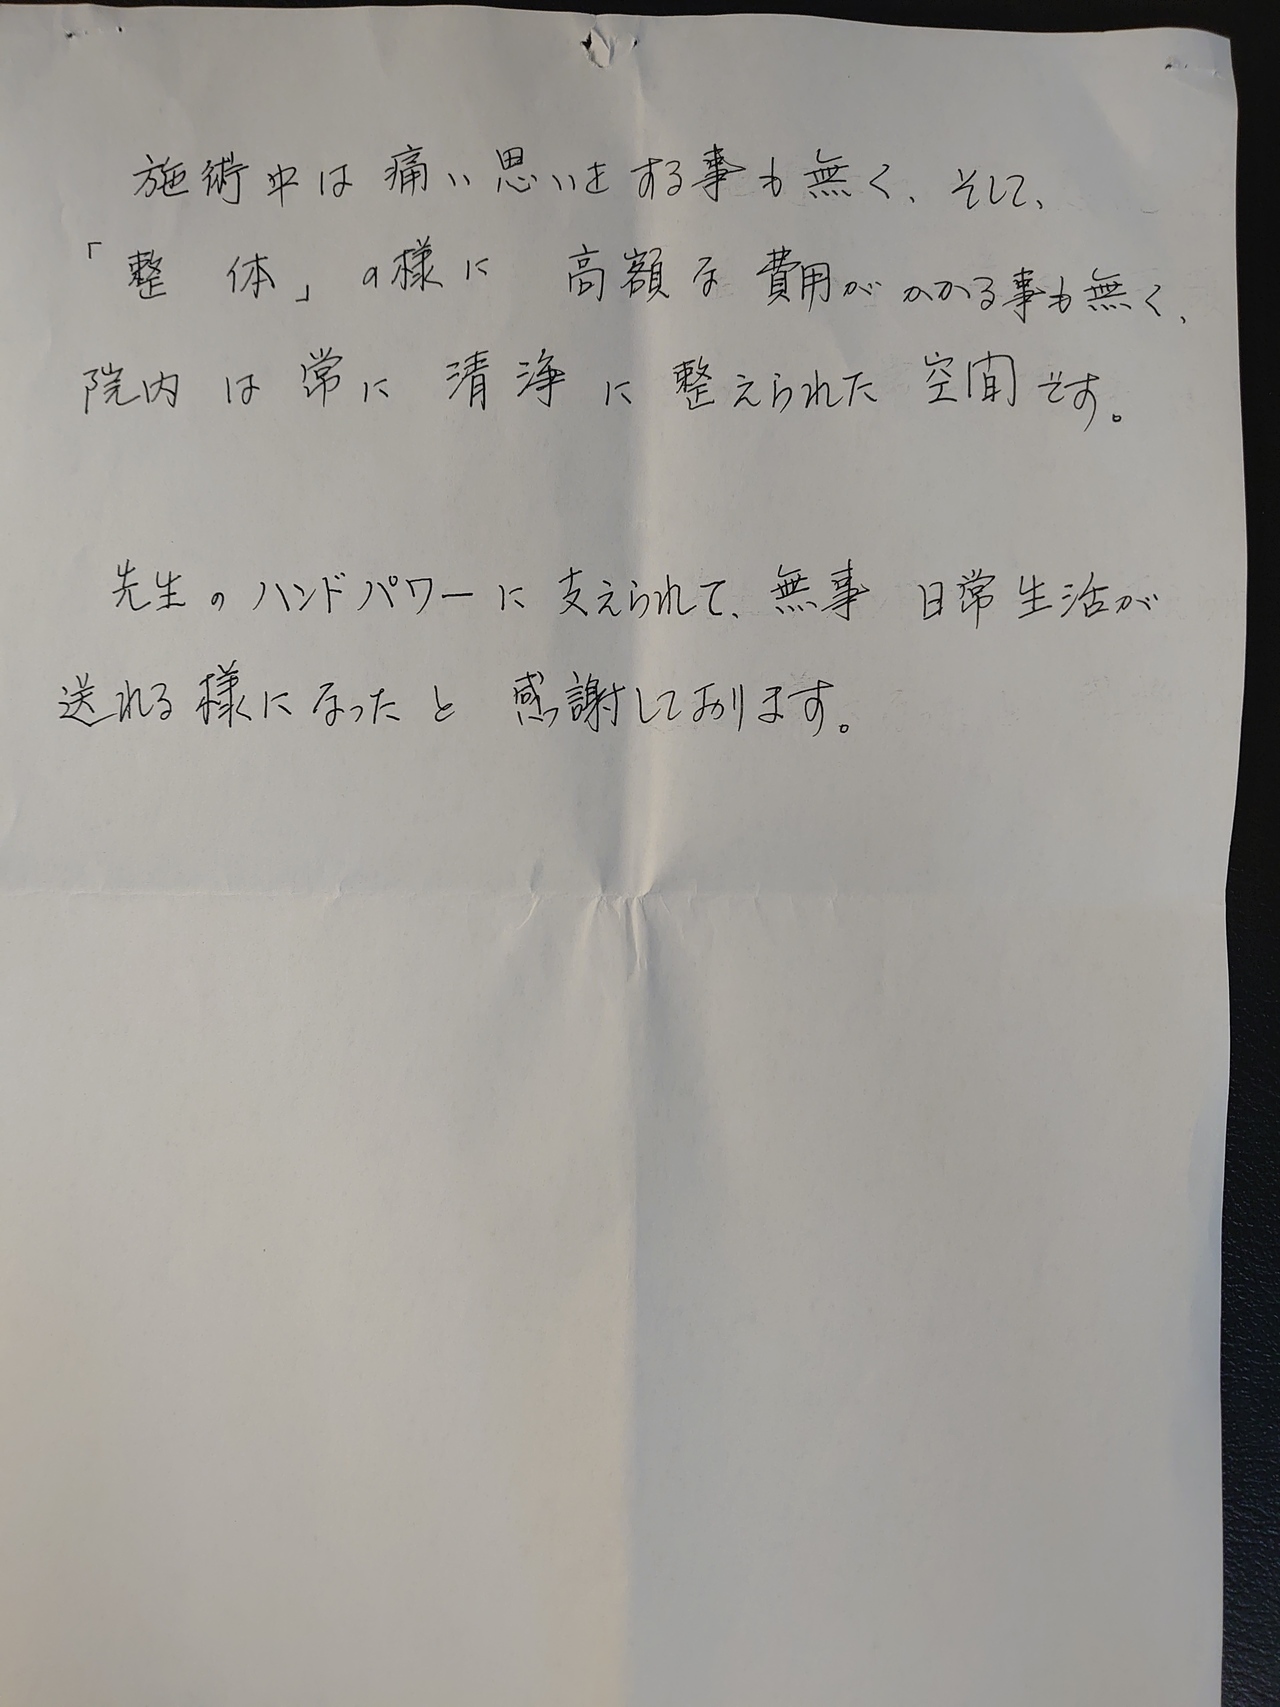 施術中は痛い思いをする事も無く、そして、
「整体」の様に高額な費用がかかる事も無く、
院内は常に清浄に整えられた空間です。
先生のハンドパワーに支えられて、無事日常生活が
送れる様になったと感謝しております。